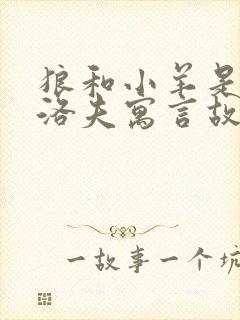 狼和小羊是
洛夫寓言故
一故事一个坑